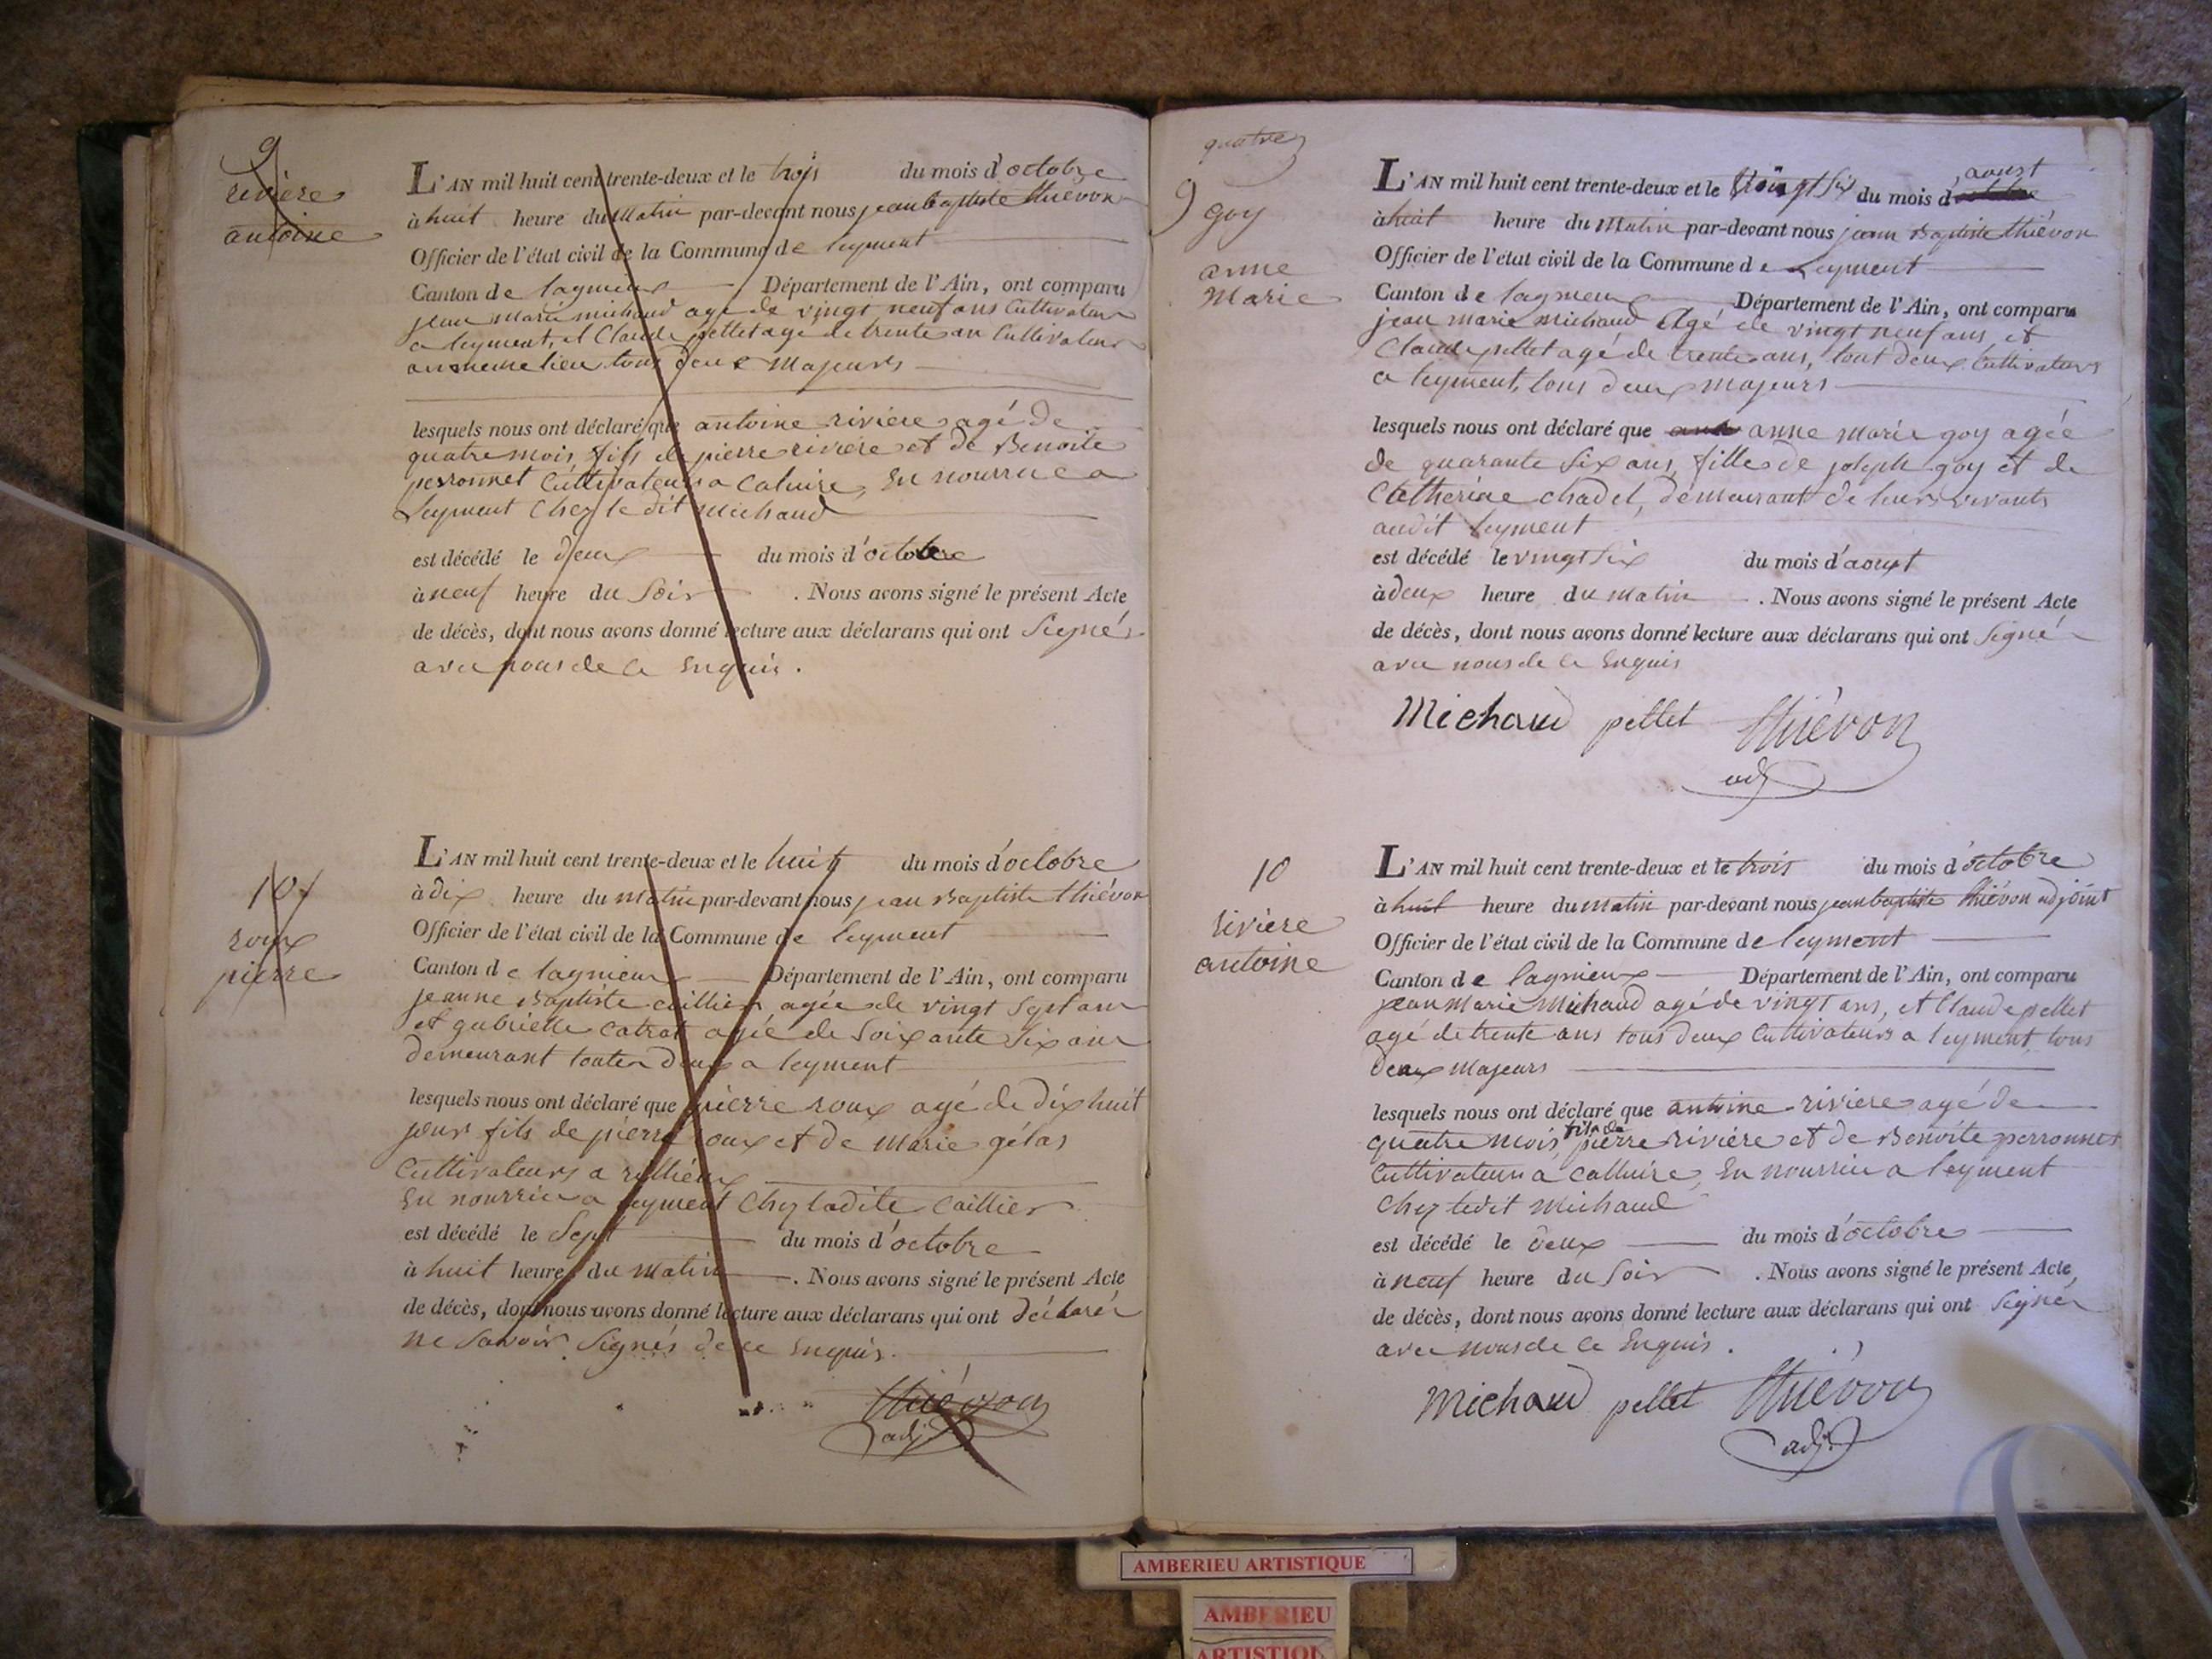 9
rivière
antoine
L'AN mil huit cent trente-deux et le trois du mois d'octobre
à huit heure du Matin par-devant nous jean baptiste thiévon
Officier de l'état civil de la Commune de leyment
Canton de lagnieux Département de l'Ain, ont comparu
jean marie michaud agé de vingt neuf ans Cultivateur
a leyment, et Claude pellet agé de trente an Cultivateur
au meme lieu tous deux Majeurs
lesquels nous ont déclaré que antoine riviere agé de
quatre mois fils de pierre riviere et de Benoite
perronnet Cultivateurs a Caluire, En nourrice a
Leyment Chez le dit Michaud
est décédé le deux du mois d'octobre
à neuf heure du Soir. Nous avons signé le présent Acte
de décès, dont nous avons donné lecture aux déclarans qui ont Signés
avec nous de ce Enquis.
10
roux
pierre
L'AN mil huit cent trente-deux et le huit du mois d'octobre
à dix heure du Matin par-devant nous jean Baptiste thiévon
Officier de l'état civil de la Commune de leyment
Canton de lagnieux Département de l'Ain, ont comparu
jeanne Baptiste caillier agée de vingt Sept ans
et gabrielle Catrat agée de Soixante Six ans
demeurant toutes Deux a leyment
lesquels nous ont déclaré que pierre roux agé de dix huit
jours fils de pierre roux et de Marie gélas
Cultivateurs a rillieux
En nourrice a leyment Chez ladite Caillier
est décédé le Sept du mois d'octobre
à huit heure du Matin. Nous avons signé le présent Acte
de décès, dont nous avons donné lecture aux déclarans qui ont déclarés
ne Savoir Signés de ce Enquis.
thiévon
adj.
quatre
9
goy
anne
Marie
L'AN mil huit cent trente-deux et le vingt Six du mois d'aoust
à huit heure du Matin par-devant nous jean Baptiste thiévon
Officier de l'état civil de la Commune de Leyment
Canton de lagnieux Département de l'Ain, ont comparu
jean marie Michaud Agé de vingt neuf ans, et
Claude pellet agé de trente ans, tout deux Cultivateurs
a leyment, tous deux majeurs
lesquels nous ont déclaré que anne marie goy agée
de quarante Six ans, fille de joseph goy et de
Cletherine chadel, demeurant de leurs vivants
audit leyment
est décédé le vingt Six du mois d'aoust
à deux heure du Matin. Nous avons signé le présent Acte
de décès, dont nous avons donné lecture aux déclarans qui ont Signé
avec nous de ce Enquis
Michaud pellet thiévon
adj
10
rivière
antoine
L'AN mil huit cent trente-deux et le trois du mois d'octobre
à huit heure du matin par-devant nous jean baptiste thiévon adjoint
Officier de l'état civil de la Commune de leyment
Canton de lagnieux Département de l'Ain, ont comparu
jean Marie Michaud agé de vingt ans, et Claude pellet
agé de trente ans tous deux Cultivateurs a leyment, tous
deux Majeurs
lesquels nous ont déclaré que antoine riviere agé de
quatre mois fils de pierre riviére et de Benoite perronnet
Cultivateurs a Calluire, En nourrice a leyment
Chez ledit Michaud
est décédé le deux du mois d'octobre
à neuf heure du Soir. Nous avons signé le présent Acte
de décès, dont nous avons donné lecture aux déclarans qui ont Signer
avec nous de ce Enquis.
Michaud pellet thiévon
adj.
AMBERIEU ARTISTIQUE
AMBERIEU
ARTISTIQU